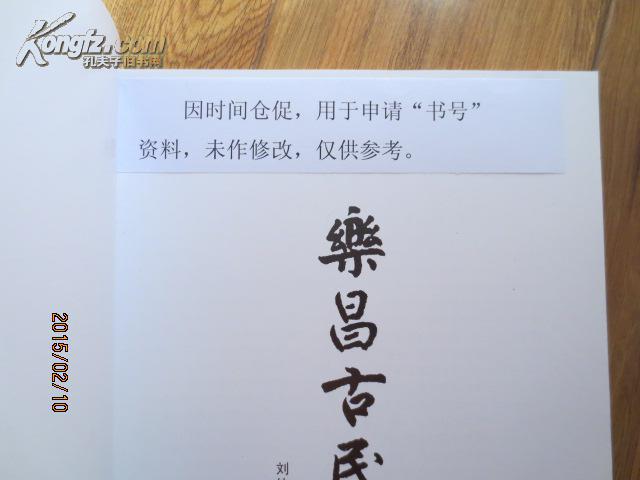 Kongfz.com
孔夫子旧书网
因时间仓促，用于申请“书号”
资料，未作修改，仅供参考。
樂昌古民
刘
2015/02/10